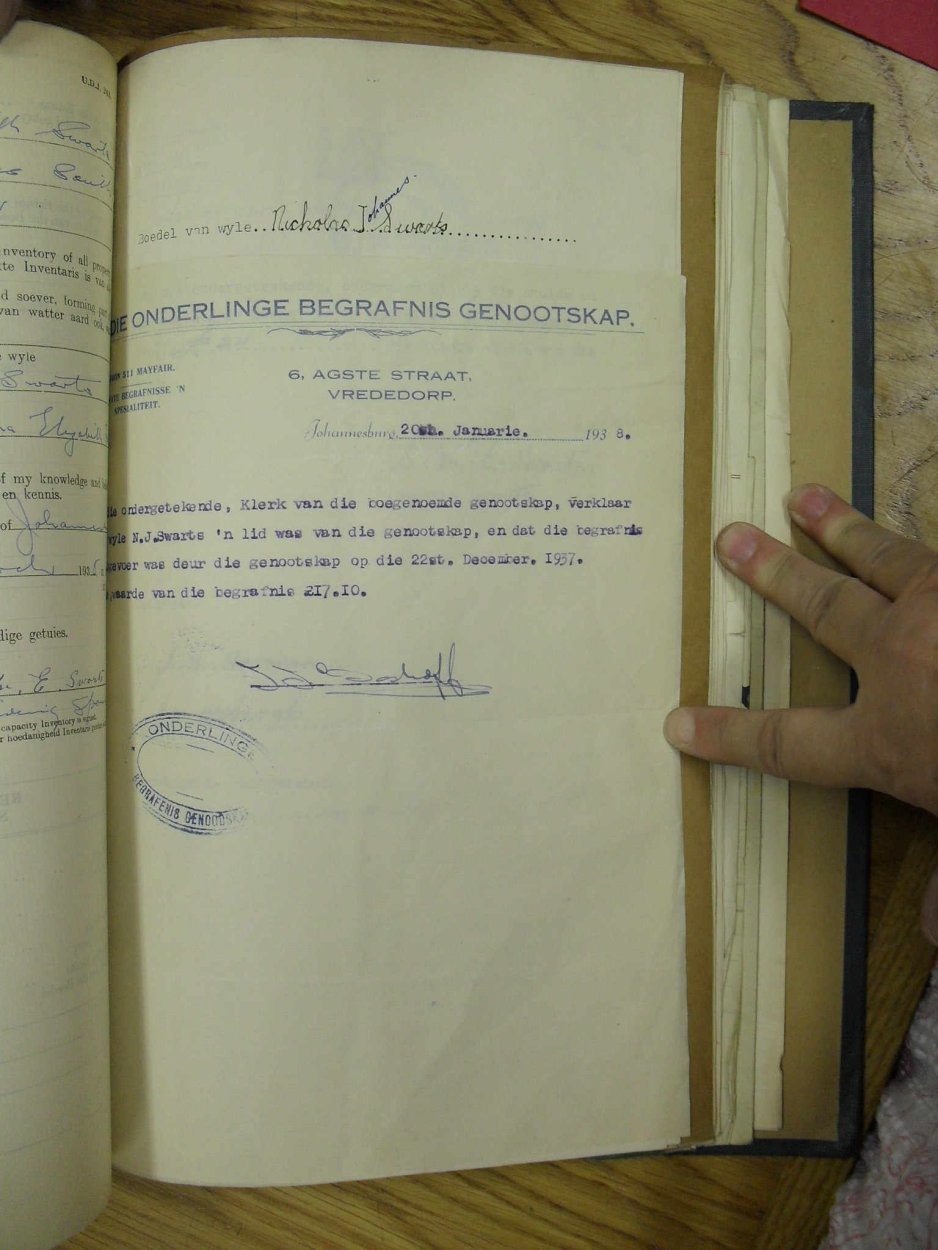 U.D.J.
Swarts
nventory of all
te Inventaris is van
d soever, forming
van watter aard ook,
wyle
Swarts
Elizabeth
of my knowledge and
en kennis.
of Johannes
193
dige getuies.
E. Swarts
capacity Inventory is signed.
r hoedanigheid Inventaris
Boedel van wyle..Nicholas Johannes Swarts................
DIE ONDERLINGE BEGRAFNIS GENOOTSKAP.
511 MAYFAIR.
BEGRAFNISSE 'N
SPESIALITEIT.
6, AGSTE STRAAT,
VREDEDORP.
Johannesburg, 20th. Januarie. 1938.
ondergetekende, Klerk van die boegenoemde genootskap, verklaar
wyle N.J.Swarts 'n lid was van die genootskap, en dat die begrafnis
was deur die genootskap op die 22st. December. 1937.
waarde van die begrafnis £17.10.
ONDERLINGE
BEGRAFENIS GENOODSKAP